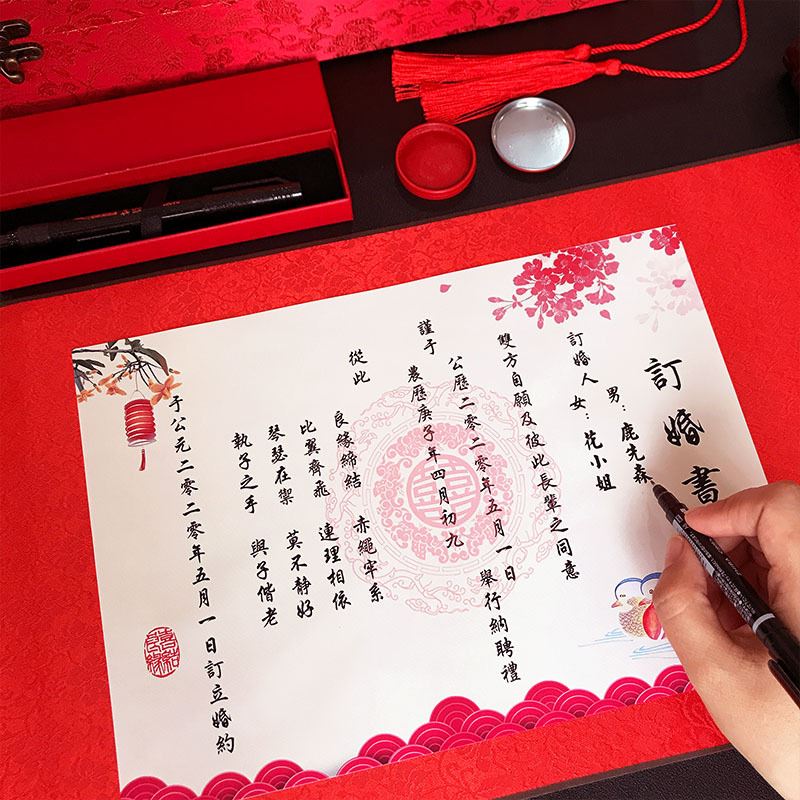 訂婚書
男：鹿先森
訂婚人女：花小姐
雙方自願及彼此長輩之同意
公歷二零二零年五月一日
舉行納聘禮
謹于農歷庚子年四月初九
從此
良緣締結 赤繩牢系
比翼齊飛 連理相依
琴瑟在禦 莫不靜好
執子之手 與子偕老
于公元二零二零年五月一日訂立婚約
喜結良緣